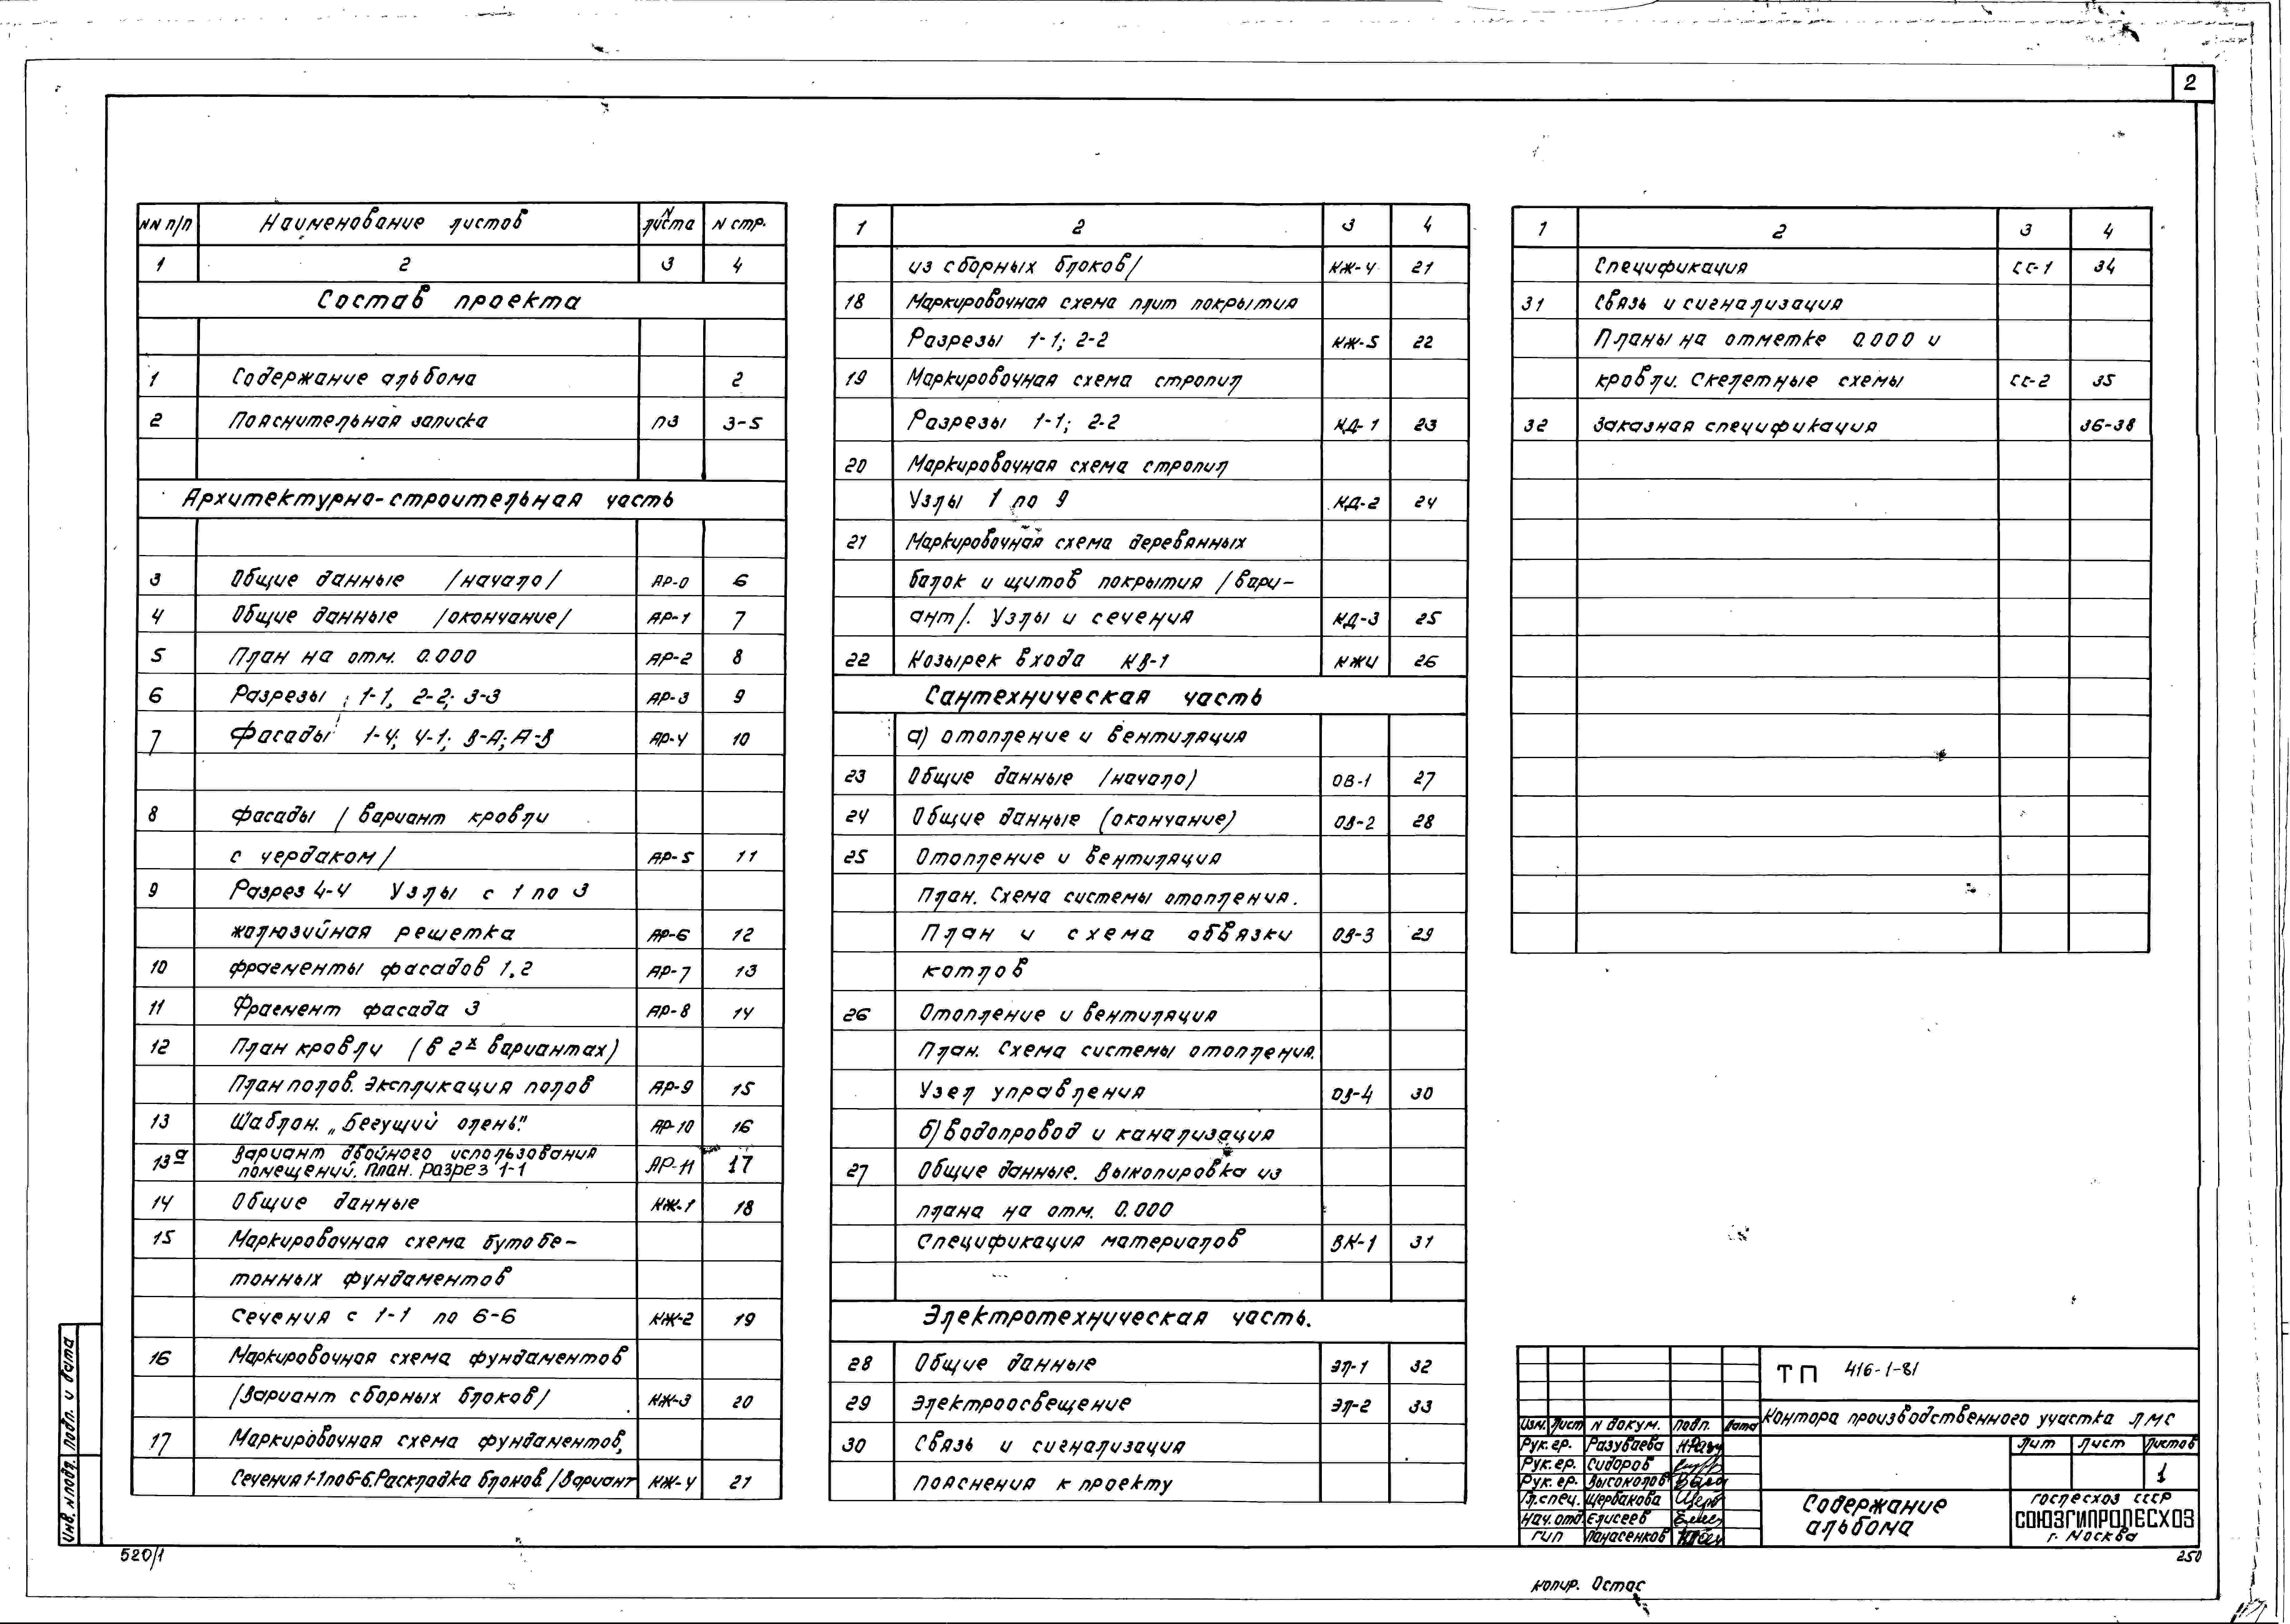 2
NN п/п Наименование листов N листа N стр.
1 2 3 4
Состав проекта
1 Содержание альбома 2
2 Пояснительная записка ПЗ 3-5
Архитектурно-строительная часть
3 Общие данные /начало/ АР-0 6
4 Общие данные /окончание/ АР-1 7
5 План на отм. 0.000 АР-2 8
6 Разрезы 1-1, 2-2; 3-3 АР-3 9
7 Фасады 1-4; 4-1; В-А; А-В АР-4 10
8 Фасады /вариант кровли
с чердаком/ АР-5 11
9 Разрез 4-4 Узлы с 1 по 3
жалюзийная решетка АР-6 12
10 Фрагменты фасадов 1,2 АР-7 13
11 Фрагмент фасада 3 АР-8 14
12 План кровли (в 2х вариантах)
План полов. Экспликация полов АР-9 15
13 Шаблон. „Бегущий олень." АР-10 16
13а Вариант двойного использования
помещений. План. разрез 1-1 АР-11 17
14 Общие данные КЖ-1 18
15 Маркировочная схема бутобе-
тонных фундаментов
Сечения с 1-1 по 6-6 КЖ-2 19
16 Маркировочная схема фундаментов
/Вариант сборных блоков/ КЖ-3 20
17 Маркировочная схема фундаментов,
Сечения 1-1 по 6-6. Раскладка блоков /Вариант КЖ-4 21
1 2 3 4
из сборных блоков/ КЖ-4 21
18 Маркировочная схема плит покрытия
Разрезы 1-1; 2-2 КЖ-5 22
19 Маркировочная схема стропил
Разрезы 1-1; 2-2 КД-1 23
20 Маркировочная схема стропил
Узлы 1 по 9 КД-2 24
21 Маркировочная схема деревянных
балок и щитов покрытия /вари-
ант/. Узлы и сечения КД-3 25
22 Козырек входа КВ-1 КЖИ 26
Сантехническая часть
а) отопление и вентиляция
23 Общие данные /начало) ОВ-1 27
24 Общие данные (окончание) ОВ-2 28
25 Отопление и вентиляция
План. Схема системы отопления.
План и схема обвязки ОВ-3 29
котлов
26 Отопление и вентиляция
План. Схема системы отопления.
Узел управления ОВ-4 30
б) Водопровод и канализация
27 Общие данные. Выкопировка из
плана на отм. 0.000
Спецификация материалов ВК-1 31
Электротехническая часть.
28 Общие данные ЭЛ-1 32
29 Электроосвещение ЭЛ-2 33
30 Связь и сигнализация
пояснения к проекту
1 2 3 4
Спецификация СС-1 34
31 Связь и сигнализация
Планы на отметке 0.000 и
кровли. Скелетные схемы СС-2 35
32 Заказная спецификация 36-38
ТП 416-1-81
Контора производственного участка ЛМС
Изм. Лист N докум. Подп. Дата
Рук. гр. Разуваева
Рук. гр. Сидоров
Рук. гр. Высоколов
Гл. спец. Щербакова
Нач. отд Елисеев
ГИП Панасенков
Лит Лист Листов
1
Содержание
альбома
Гослесхоз СССР
СОЮЗГИПРОЛЕСХОЗ
г. Москва
Инв. N подл. Подп. и дата
520/1
250
копир. Остас